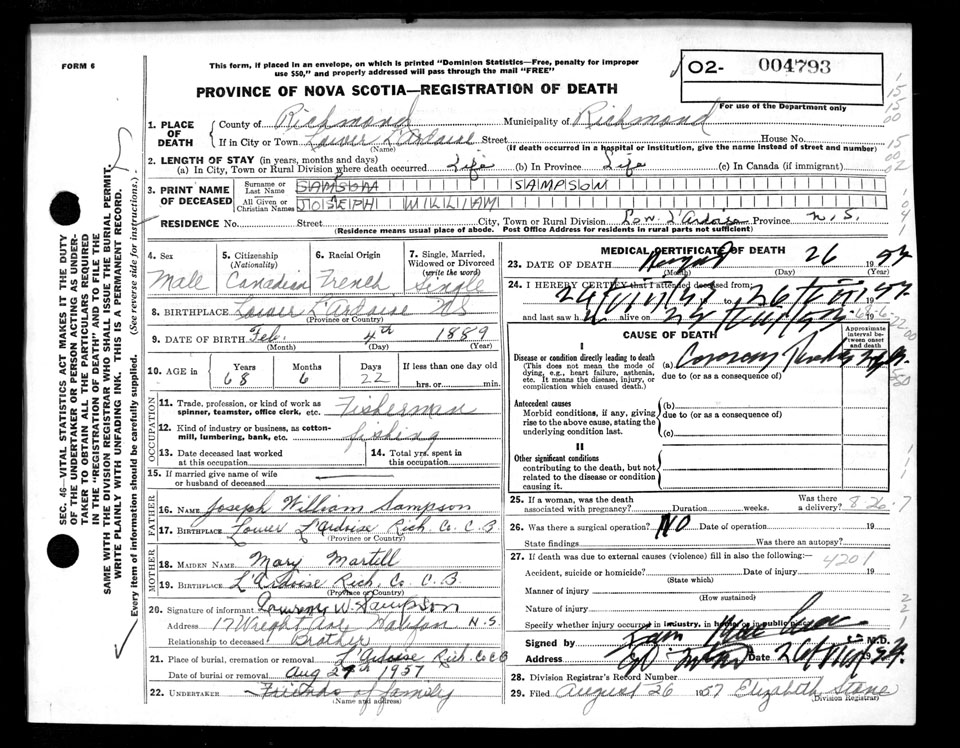 FORM 6
This form, if placed in an envelope, on which is printed "Dominion Statistics—Free, penalty for improper
use $50," and properly addressed will pass through the mail "FREE"
O2- 004793
For use of the Department only
PROVINCE OF NOVA SCOTIA—REGISTRATION OF DEATH
1. PLACE OF DEATH
County of Richmond Municipality of Richmond
If in City or Town Lower L'Ardoise Street House No.
(Name) (If death occurred in a hospital or institution, give the name instead of street and number)
2. LENGTH OF STAY (in years, months and days)
(a) In City, Town or Rural Division where death occurred Life (b) In Province Life (c) In Canada (if immigrant)
3. PRINT NAME OF DECEASED
Surname or Last Name SAMSON SAMPSON
All Given or Christian Names JOSEPH WILLIAM
RESIDENCE No. Street City, Town or Rural Division Low. L'Ardoise Province N.S.
(Residence means usual place of abode. Post Office Address for residents in rural parts not sufficient)
4. Sex Male
5. Citizenship (Nationality) Canadian
6. Racial Origin French
7. Single, Married, Widowed or Divorced (write the word) Single
8. BIRTHPLACE Lower L'Ardoise NS
(Province or Country)
9. DATE OF BIRTH Feb. 4th 1889
(Month) (Day) (Year)
10. AGE in Years 68 Months 6 Days 22 If less than one day old
hrs. or min.
OCCUPATION
11. Trade, profession, or kind of work as
spinner, teamster, office clerk, etc. Fisherman
12. Kind of industry or business, as cotton-
mill, lumbering, bank, etc. fishing
13. Date deceased last worked
at this occupation
14. Total yrs. spent in
this occupation
15. If married give name of wife
or husband of deceased
FATHER
16. NAME Joseph William Sampson
17. BIRTHPLACE Lower L'Ardoise Rich. Co. C.B
(Province or Country)
MOTHER
18. MAIDEN NAME Mary Martell
19. BIRTHPLACE L'Ardoise Rich. Co. C.B.
(Province or Country)
20. Signature of informant W. Sampson
Address 17 Wright Ave Halifax N.S.
Relationship to deceased Brother
21. Place of burial, cremation or removal L'Ardoise Rich. Co C B
Date of burial or removal Aug 29th 1957
22. UNDERTAKER Friends of family
(Name and address)
MEDICAL CERTIFICATE OF DEATH
23. DATE OF DEATH August 26 1957
(Month) (Day) (Year)
24. I HEREBY CERTIFY that I attended deceased from:
24 to 26 57
and last saw h alive on 19
CAUSE OF DEATH
Approximate interval between onset and death
I
Disease or condition directly leading to death
(This does not mean the mode of
dying, e.g., heart failure, asthenia,
etc. It means the disease, injury, or
complication which caused death.)
(a) Coronary
due to (or as a consequence of)
Antecedent causes
Morbid conditions, if any, giving
rise to the above cause, stating the
underlying condition last.
(b)
due to (or as a consequence of)
(c)
II
Other significant conditions
contributing to the death, but not
related to the disease or condition
causing it.
25. If a woman, was the death
associated with pregnancy? Duration weeks. Was there a delivery? 8-26-7
26. Was there a surgical operation? NO Date of operation 19
State findings Was there an autopsy?
27. If death was due to external causes (violence) fill in also the following:— 4201
Accident, suicide or homicide? Date of injury 19
(State which)
Manner of injury
(How sustained)
Nature of injury
Specify whether injury occurred in industry, in home, or in public place
Signed by M.D.
Address Date 26
28. Division Registrar's Record Number
29. Filed August 26 1957 Elizabeth Stone
(Division Registrar)
SEC. 46—VITAL STATISTICS ACT MAKES IT THE DUTY
OF THE UNDERTAKER OR PERSON ACTING AS UNDER-
TAKER TO OBTAIN ALL THE PARTICULARS REQUIRED
IN THE "REGISTRATION OF DEATH" AND TO FILE THE
SAME WITH THE DIVISION REGISTRAR WHO SHALL ISSUE THE BURIAL PERMIT.
WRITE PLAINLY WITH UNFADING INK. THIS IS A PERMANENT RECORD.
Every item of information should be carefully supplied. (See reverse side for instructions.)